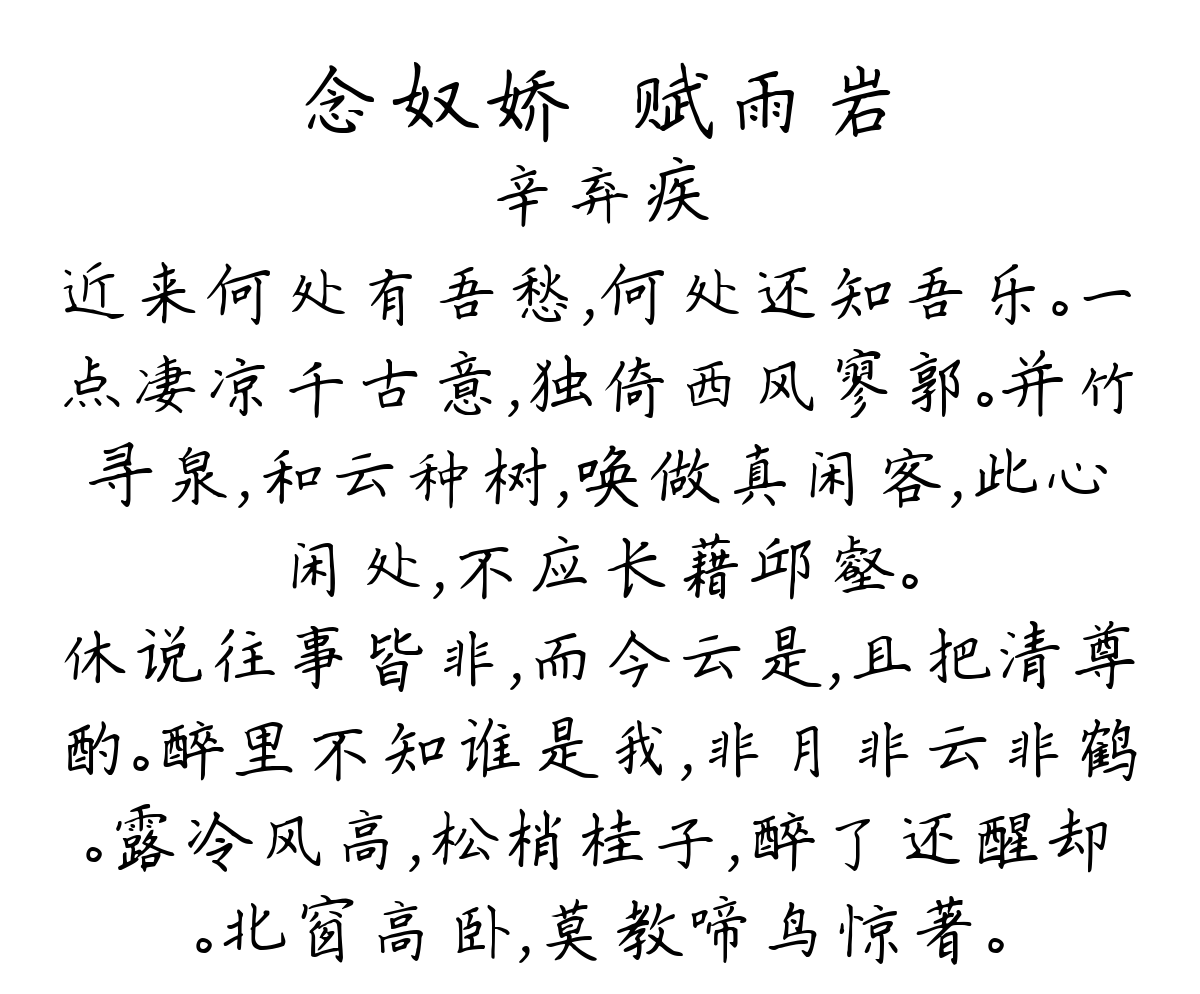 念奴娇 赋雨岩
辛弃疾
近来何处有吾愁,何处还知吾乐。一
点凄凉千古意,独倚西风寥郭。并竹
寻泉,和云种树,唤做真闲客,此心
闲处,不应长藉邱壑。
休说往事皆非,而今云是,且把清尊
酌。醉里不知谁是我,非月非云非鹤
。露冷风高,松梢桂子,醉了还醒却
。北窗高卧,莫教啼鸟惊著。